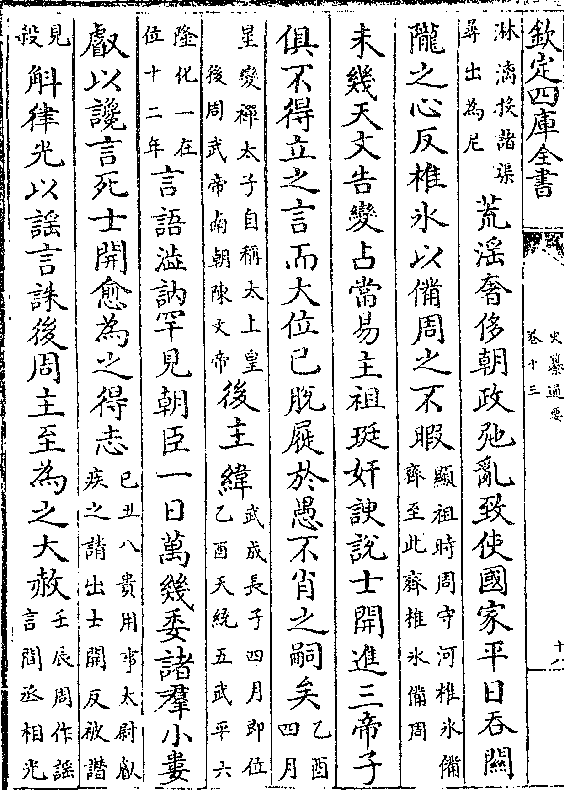 欽定四庫全書
史纂通要
卷十三
十八
淋漓挨諸渠
尋出為尼
荒淫奢侈朝政弛亂致使國家平日吞關
隴之心反椎氷以備周之不暇
顯祖時周守河椎氷備
齊至此齊椎氷備周
未幾天文告變占當易主祖珽奸諛說士開進三帝子
俱不得立之言而大位已脫屣於愚不肖之嗣矣
乙酉
四月
星變禪太子自稱太上皇
後周武帝南朝陳文帝
後主緯
武成長子四月即位
乙酉天統五武平六
隆化一在
位十二年
言語澁訥罕見朝臣一日萬幾委諸羣小婁
叡以讒言死士開愈為之得志
己丑八貴用事太尉叡
疾之請出士開反被譖
見
殺
斛律光以謡言誅後周主至為之大赦
壬辰周作謡
言間丞相光